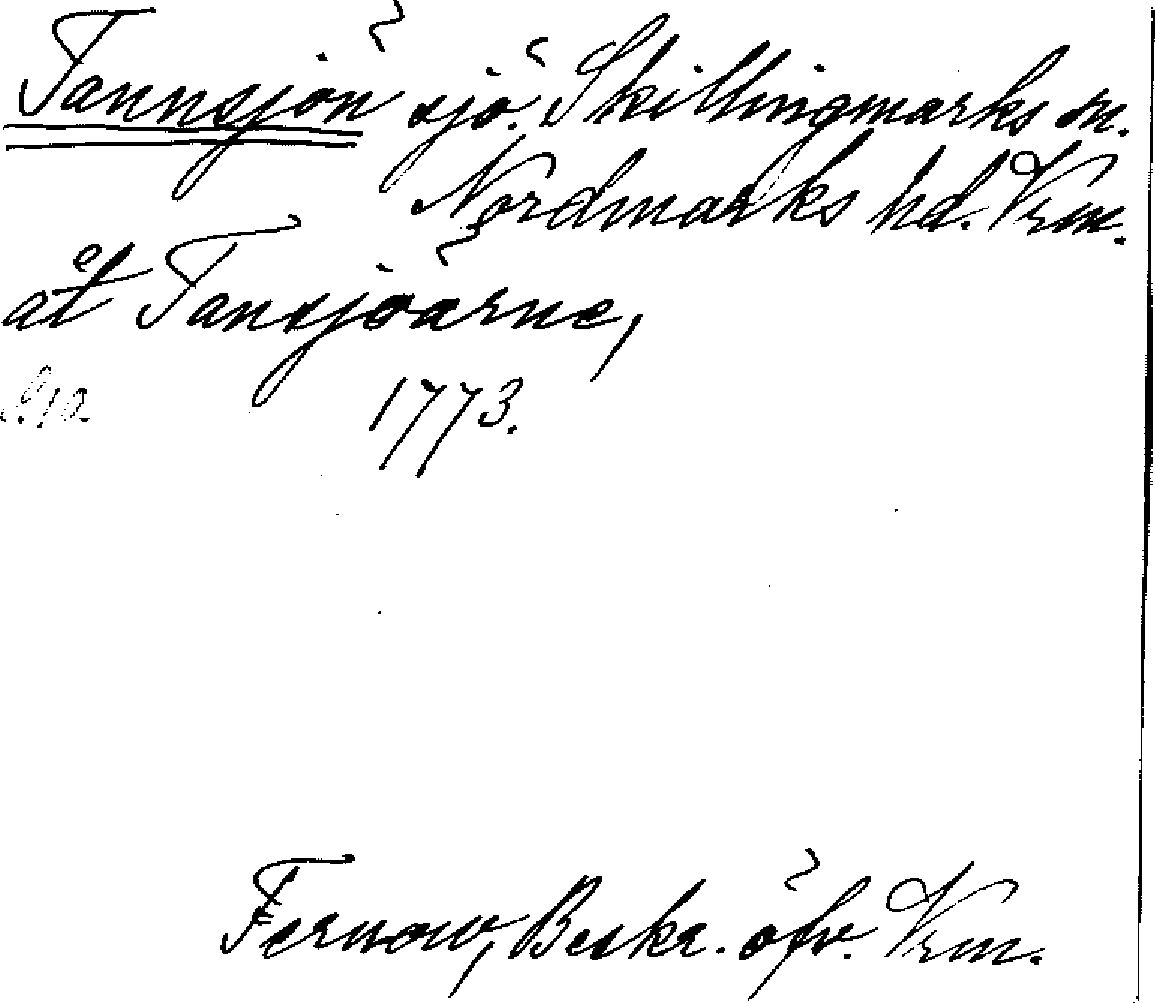 Tannsjön sjö. Skillingmarks sn.
Nordmarks hd. Vrm.
åt Tansjöarne,
1773.
Fernow, Beskr. öfv. Vrm.